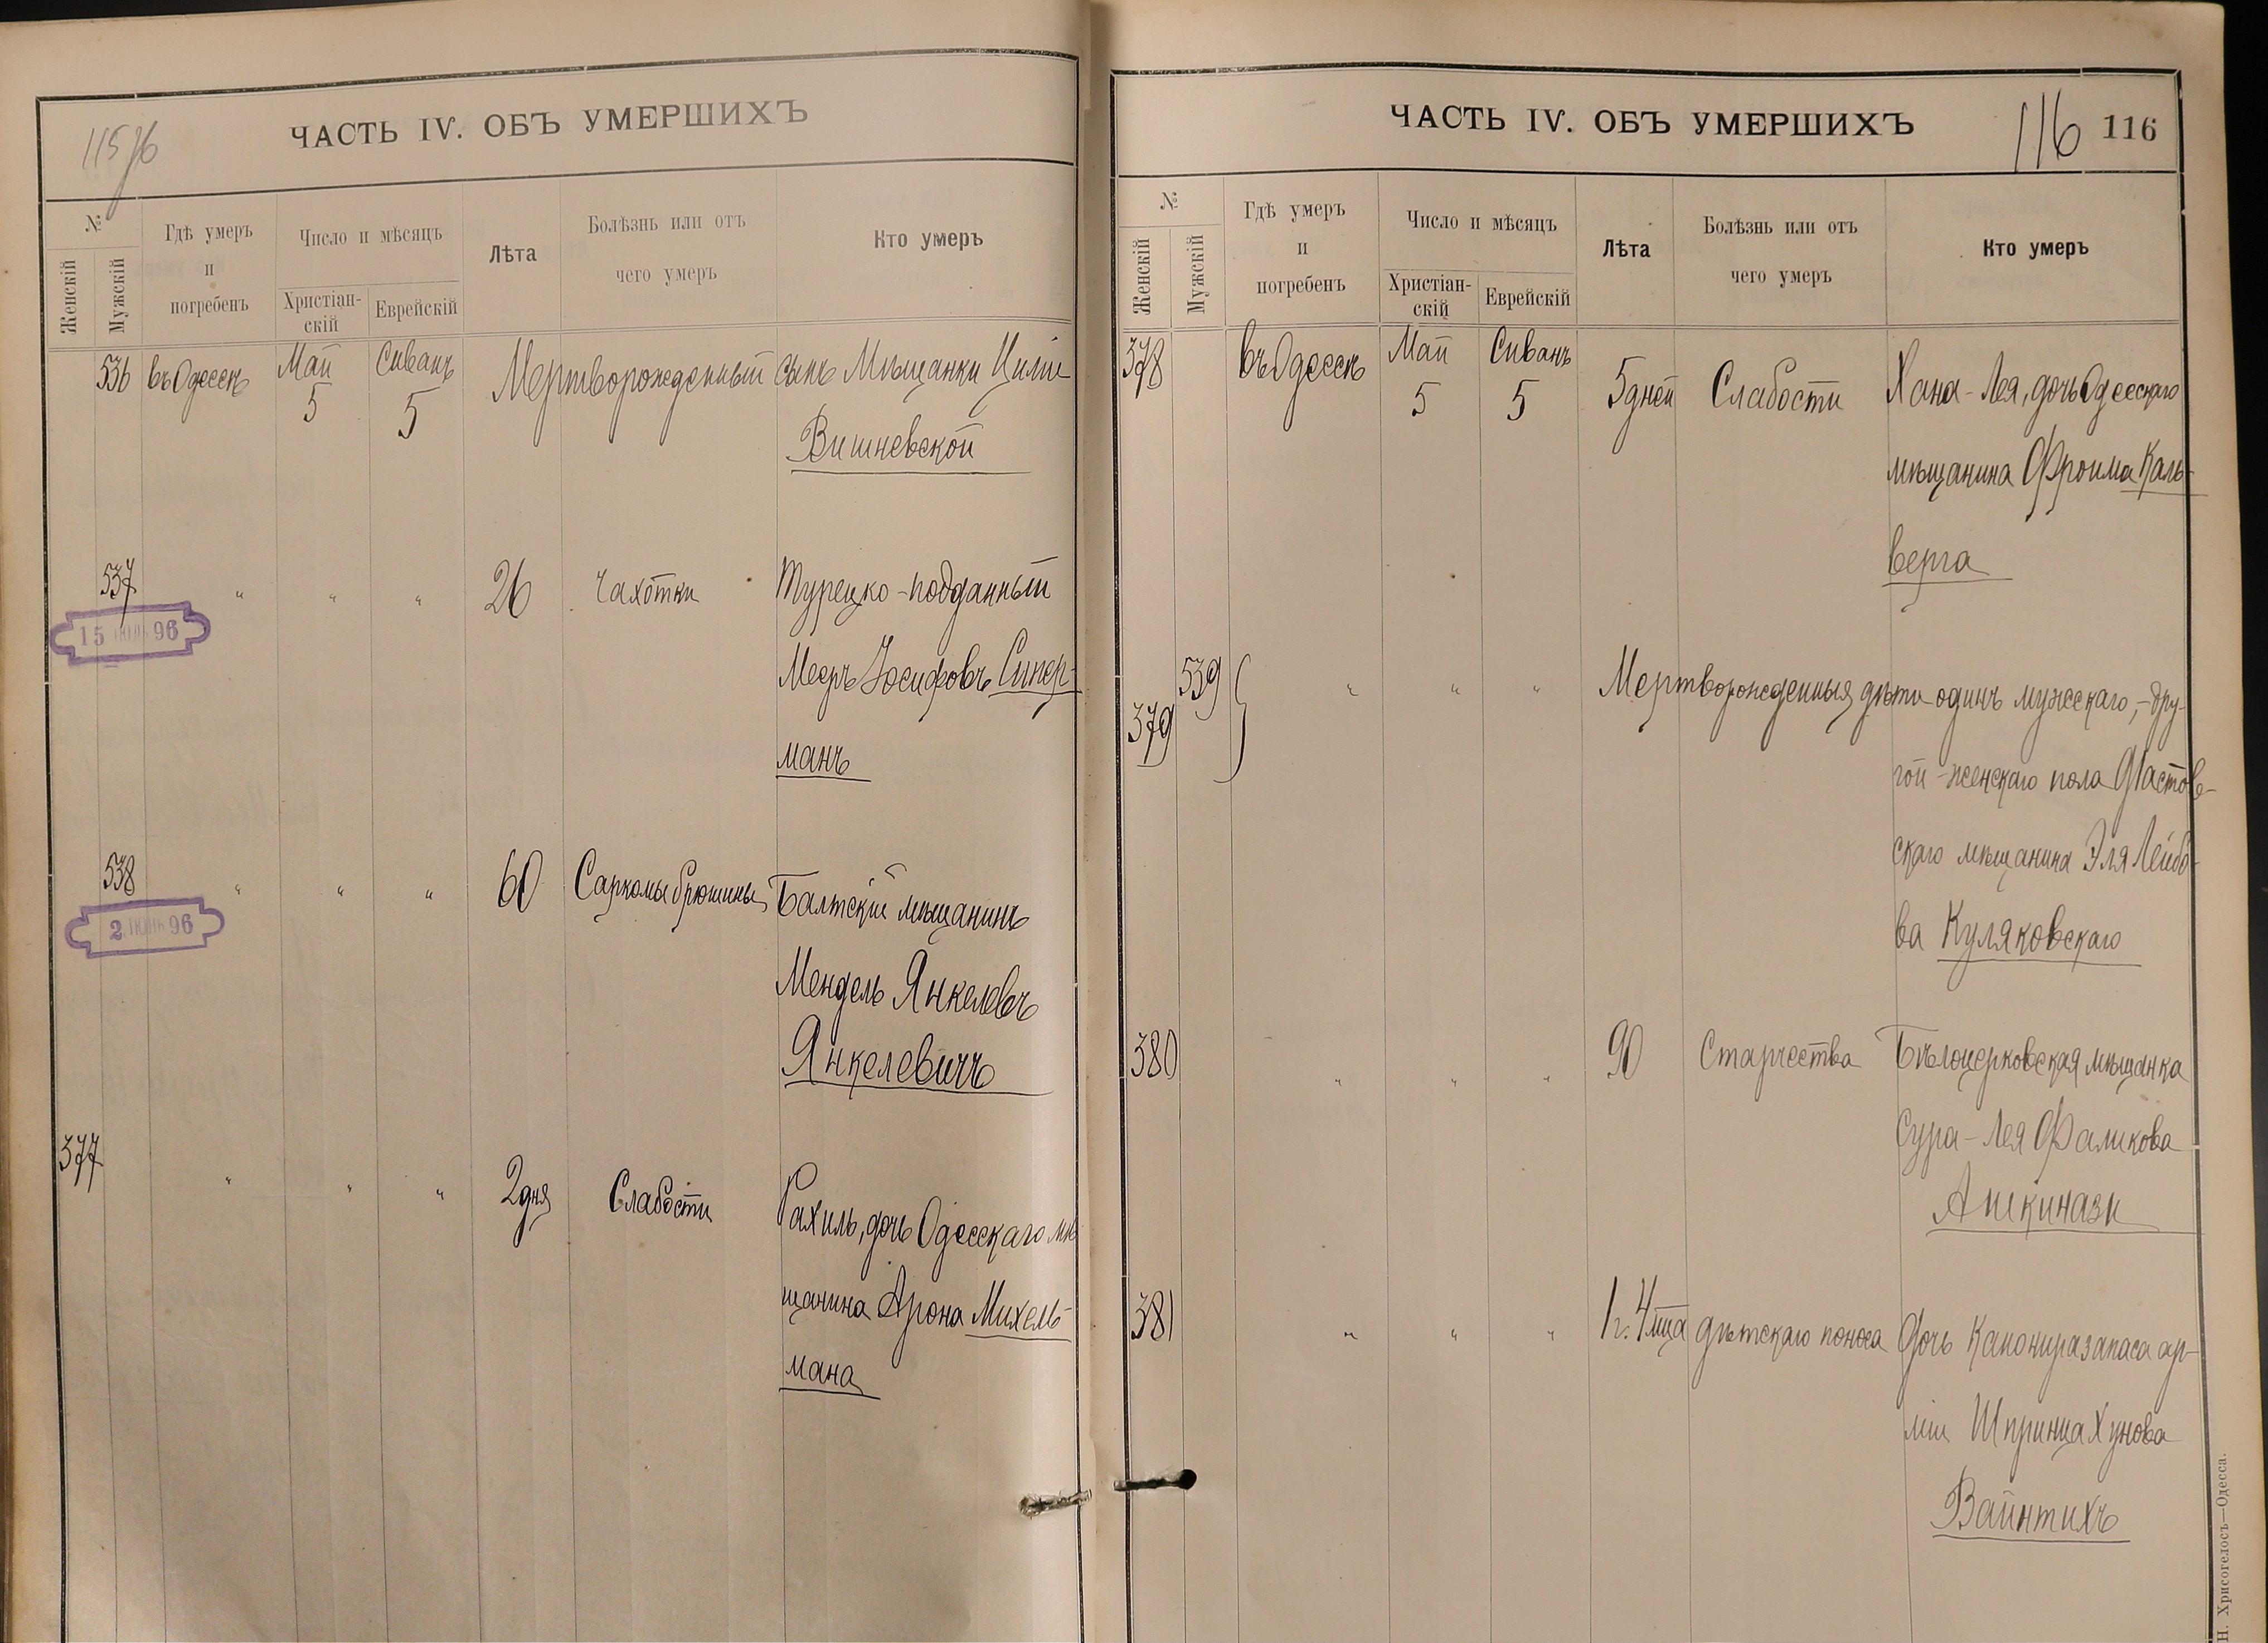 115 об
ЧАСТЬ IV. ОБЪ УМЕРШИХЪ
№
Женскій
Мужскій
Гдѣ умеръ
и
погребенъ
Число и мѣсяцъ
Христіан-
скій
Еврейскій
Лѣта
Болѣзнь или отъ
чего умеръ
Кто умеръ
536 въ Одессѣ Май Сиванъ Мертворожденный сынъ Мѣщанки Циліи
5 5 Вишневской
537 " " " 26 Чахотки Турецко-подданный
15 ІЮЛЬ 96
Мееръ Іосифовъ Синер-
манъ
538 " " " 60 Саркомы брюшины Балтскій мѣщанинъ
2 ІЮНЬ 96
Мендель Янкелевъ
Янкелевичъ
377 " " " 2 дня Слабости Рахиль, дочь Одесскаго мѣ
щанина Арона Михель-
мана
ЧАСТЬ IV. ОБЪ УМЕРШИХЪ
116 116
№
Женскій
Мужскій
Гдѣ умеръ
и
погребенъ
Число и мѣсяцъ
Христіан-
скій
Еврейскій
Лѣта
Болѣзнь или отъ
чего умеръ
Кто умеръ
378 въ Одессѣ Май Сиванъ 5 дней Слабости Хана-Лея, дочь Одесскаго
5 5 мѣщанина Фроима Каль-
верга
539 " " " Мертворожденныя дѣти одинъ мужескаго, - дру-
379
гой - женскаго пола Фастов-
скаго мѣщанина Эля Лейбо-
ва Куляковскаго
380 " " " 90 Старчества Бѣлоцерковская мѣщанка
Сура-Лея Фаликова
Ашкинази
381 " " " 1 г. 4 мца дѣтскаго поноса Дочь Канонира запаса ар-
міи Шпринца Хунова
Вайнтихъ
Н. Хрисогелосъ—Одесса.